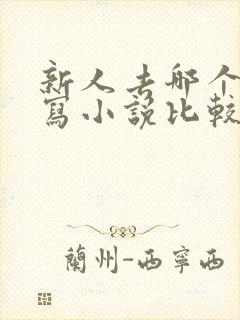 新人去哪个
寫小說比較
蘭州-西寧西